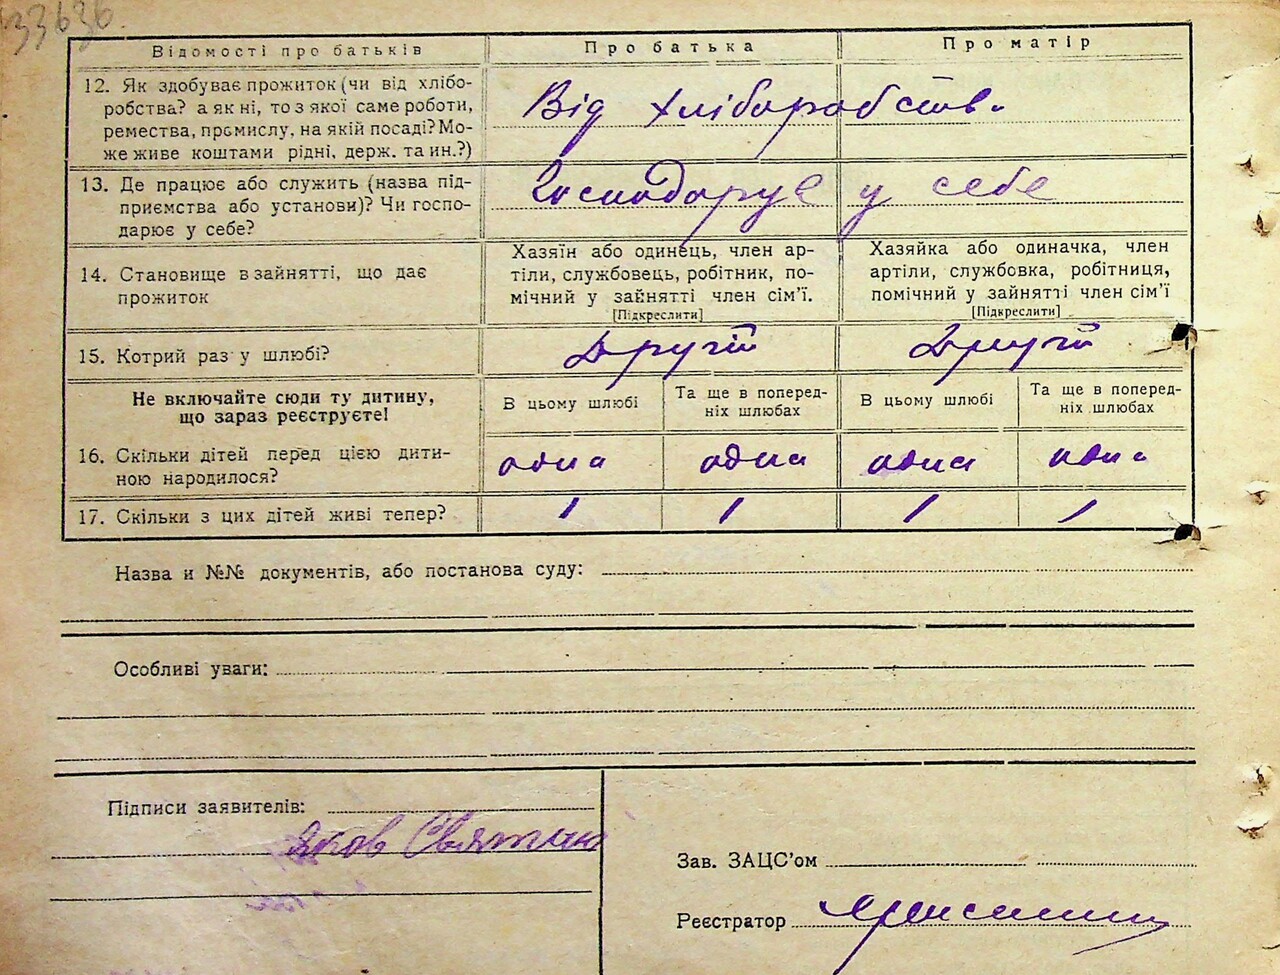 33636
Відомості про батьків
Про батька
Про матір
12. Як здобуває прожиток (чи від хлібо-
робства? а як ні, то з якої саме роботи,
ремества, промислу, на якій посаді? Мо-
же живе коштами рідні, держ. та ин.?)
Від хліборобства
13. Де працює або служить (назва під-
приємства або установи)? Чи госпо-
дарює у себе?
Господарує у себе
14. Становище в зайнятті, що дає
прожиток
Хазяїн або одинець, член ар-
тіли, службовець, робітник, по-
мічний у зайнятті член сім'ї.
[Підкреслити]
Хазяйка або одиначка, член
артіли, службовка, робітниця,
помічний у зайнятті член сім'ї
[Підкреслити]
15. Котрий раз у шлюбі?
Другій
Другій
Не включайте сюди ту дитину,
що зараз реєструєте!
В цьому шлюбі
Та ще в поперед-
ніх шлюбах
В цьому шлюбі
Та ще в поперед-
ніх шлюбах
16. Скільки дітей перед цією дити-
ною народилося?
одна
одна
одна
одна
17. Скільки з цих дітей живі тепер?
1
1
1
1
Назва и №№ документів, або постанова суду:
Особливі уваги:
Підписи заявителів:
Яков
Зав. ЗАЦС'ом
Реєстратор